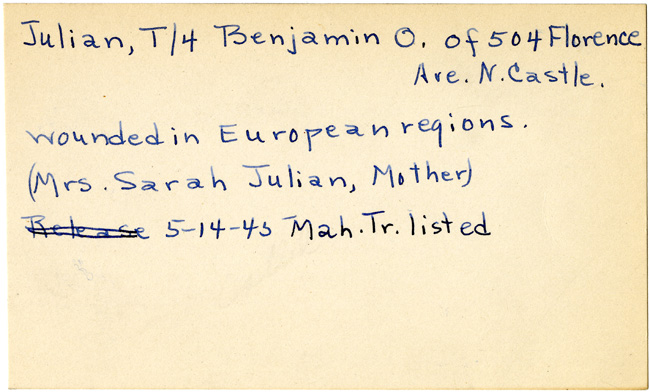 Julian, T/4 Benjamin O. of 504 Florence
Ave. N. Castle.
wounded in European regions.
(Mrs. Sarah Julian, Mother)
Release 5-14-45 Mah. Tr. listed